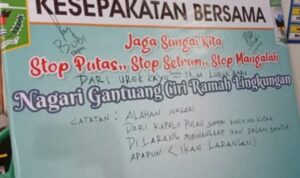 KESEPAKATAN BERSAMA
Jaga Sungai Kita
Stop Putas,. Stop Setrum,. Stop Mangalah
DARI UREK KAYU IKUA LUBUAK
Nagari Gantuang Ciri Ramah Lingkungan
CATATAN : ALAHAN NAGARI
DARI KAPALO PUTAS SAMPAI
DI LARANG MENANGKAP IKAN DALAM BENTUK
APAPUN ( IKAN LARANGAN )